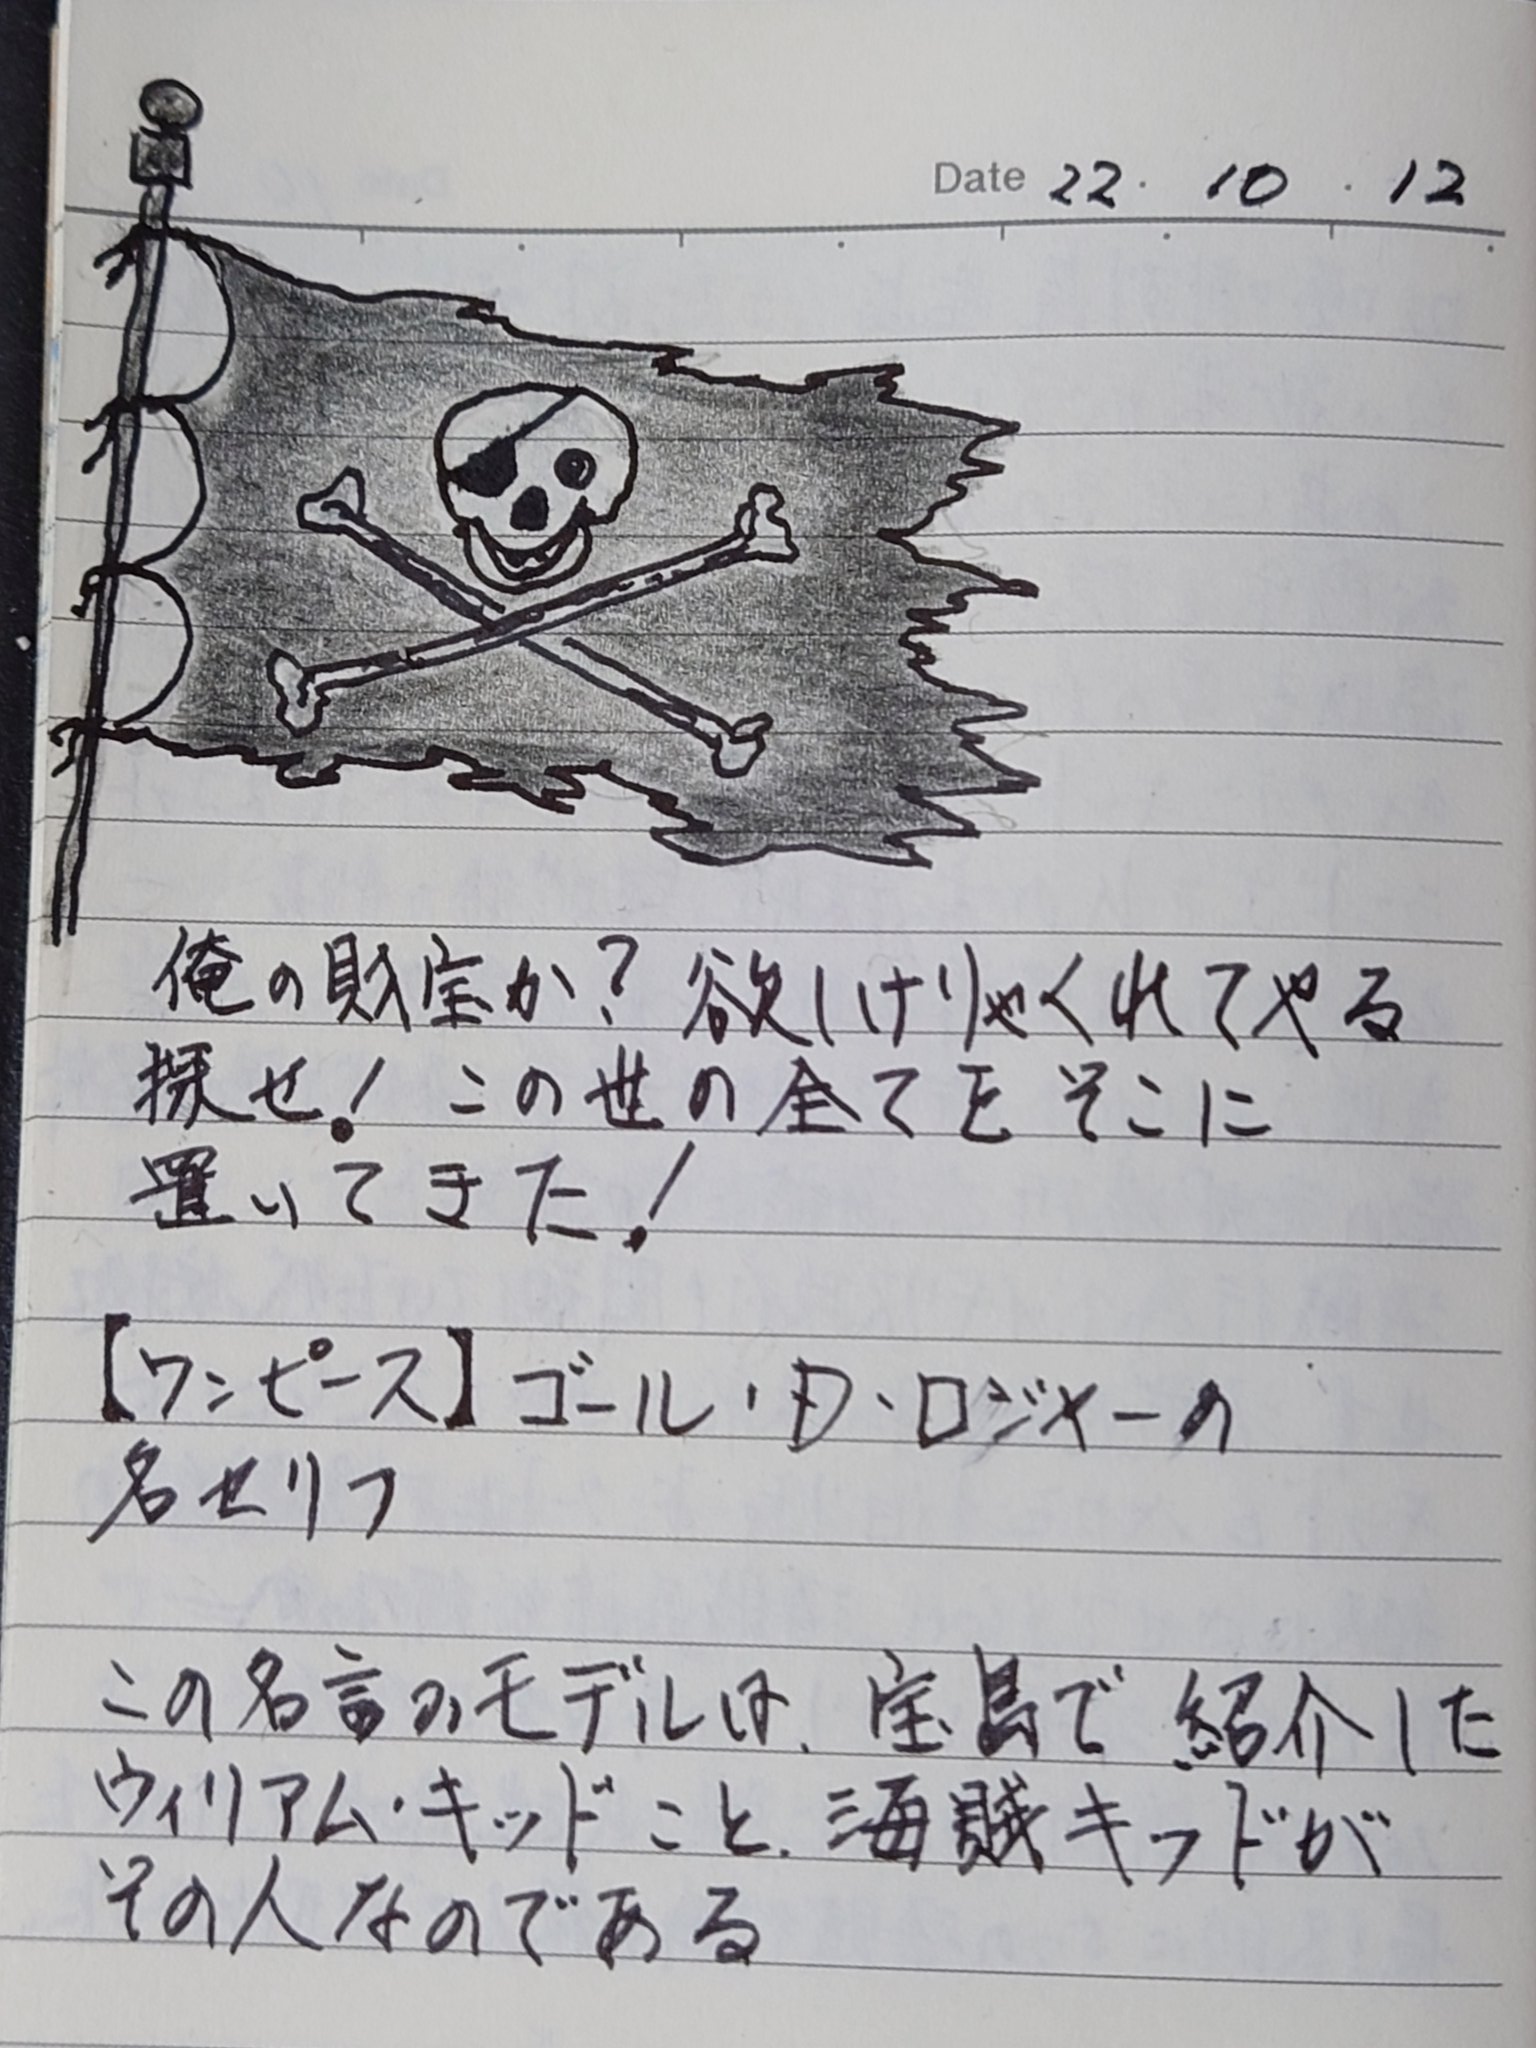 Date 22. 10. 12
俺の財宝か?欲しけりゃくれてやる
探せ!この世の全てをそこに
置いてきた!
【ワンピース】ゴール・D・ロジャーの
名セリフ
この名言のモデルは、宝島で紹介した
ウィリアム・キッドこと、海賊キッドが
その人なのである